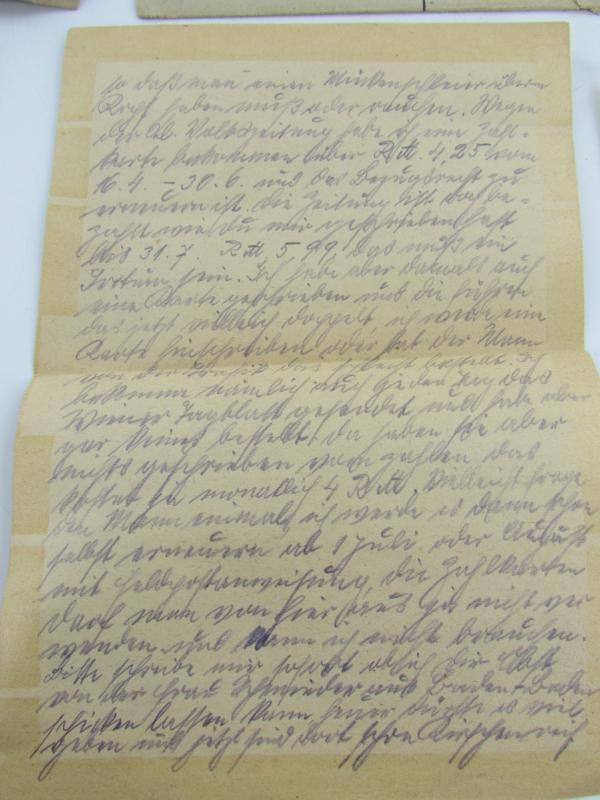 so daß man einen Mückenschleier überm
Kopf haben muß oder rauchen. Wegen
der Kl. Volkszeitung habe ich eine Zahl-
karte bekommen über RM 4,25 vom
16.4. – 30.6. und das Bezugsrecht zu
erneuern ist. Die Zeitung ist doch be-
zahlt wie Du mir geschrieben hast
bis 31.7. RM 5,99 das muß ein
Irrtum sein. Ich habe aber damals auch
eine Karte geschrieben und die führen
das jetzt vielleicht doppelt, ich werde eine
Karte hinschreiben oder hat der Mann
von der das bestellt. Ich
bekomme nämlich auch jeden Tag das
Wiener Tagblatt gesendet und habe aber
gar keines bestellt, da haben sie aber
nichts geschrieben vom zahlen, das
kostet ja monatlich 4 RM, vielleicht frage
den Mann einmal, ich werde es dann schon
selbst erneuern ab 1 Juli oder August
mit Feldpostanweisung, die Zahlkarten
darf man von hier aus gar nicht ver
wenden und kann ich nicht brauchen.
Bitte schreibe mir sofort ob ich Dir Obst
von der Frau aus Baden-Baden
schicken lassen kann, heuer dürfte es viel
geben und jetzt sind dort schon Kirschen reif